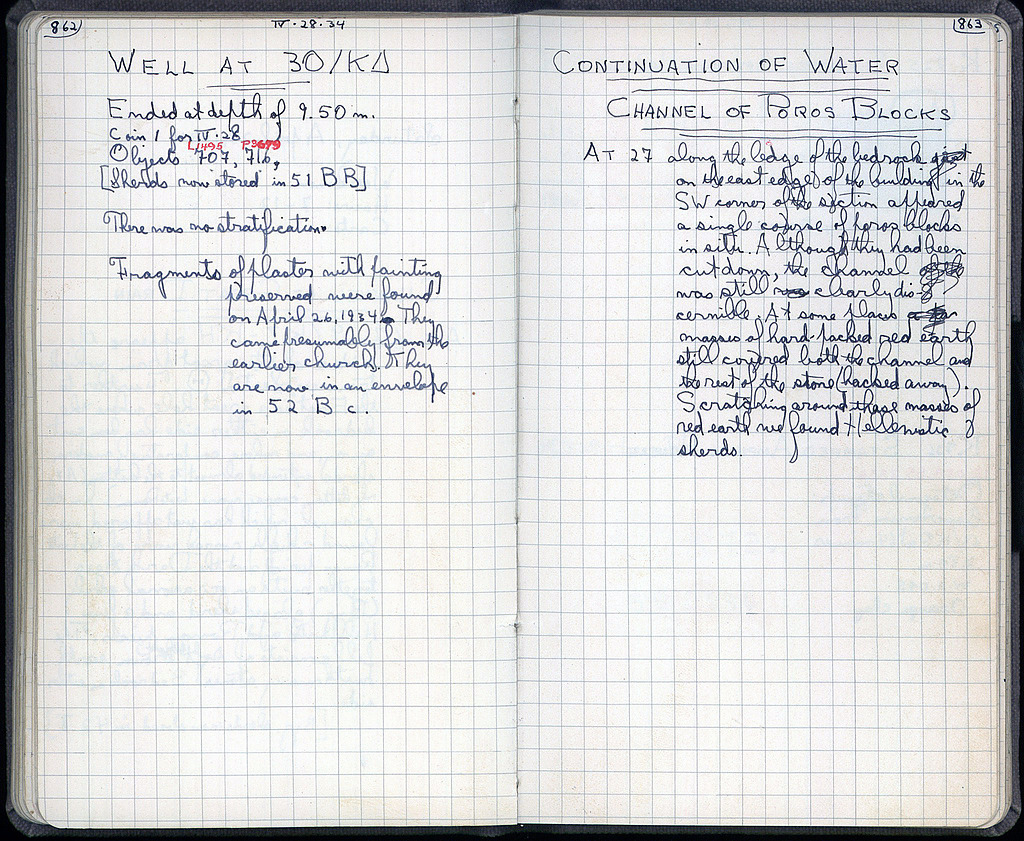 862
IV·28·34
WELL AT 30/ΚΔ
Ended at depth of 9.50 m.
Coin 1 for IV·28
L1495 P3679
Objects 707, 716,
[Sherds now stored in 51 BB]
There was no stratification.
Fragments of plaster with painting
preserved were found
on April 26, 1934. They
came presumably from the
earlier church. They
are now in an envelope
in 52 B c.
863
CONTINUATION OF WATER
CHANNEL OF POROS BLOCKS
AT 27 along the ledge of the bedrock
on the east edge of the building in the
SW corner of the section appeared
a single course of poros blocks
in situ. Although they had been
cut down, the channel
was still clearly dis-
cernible. At some places
masses of hard-packed red earth
still covered both the channel and
the rest of the stone (hacked away).
Scratching around these masses of
red earth we found Hellenistic
sherds.